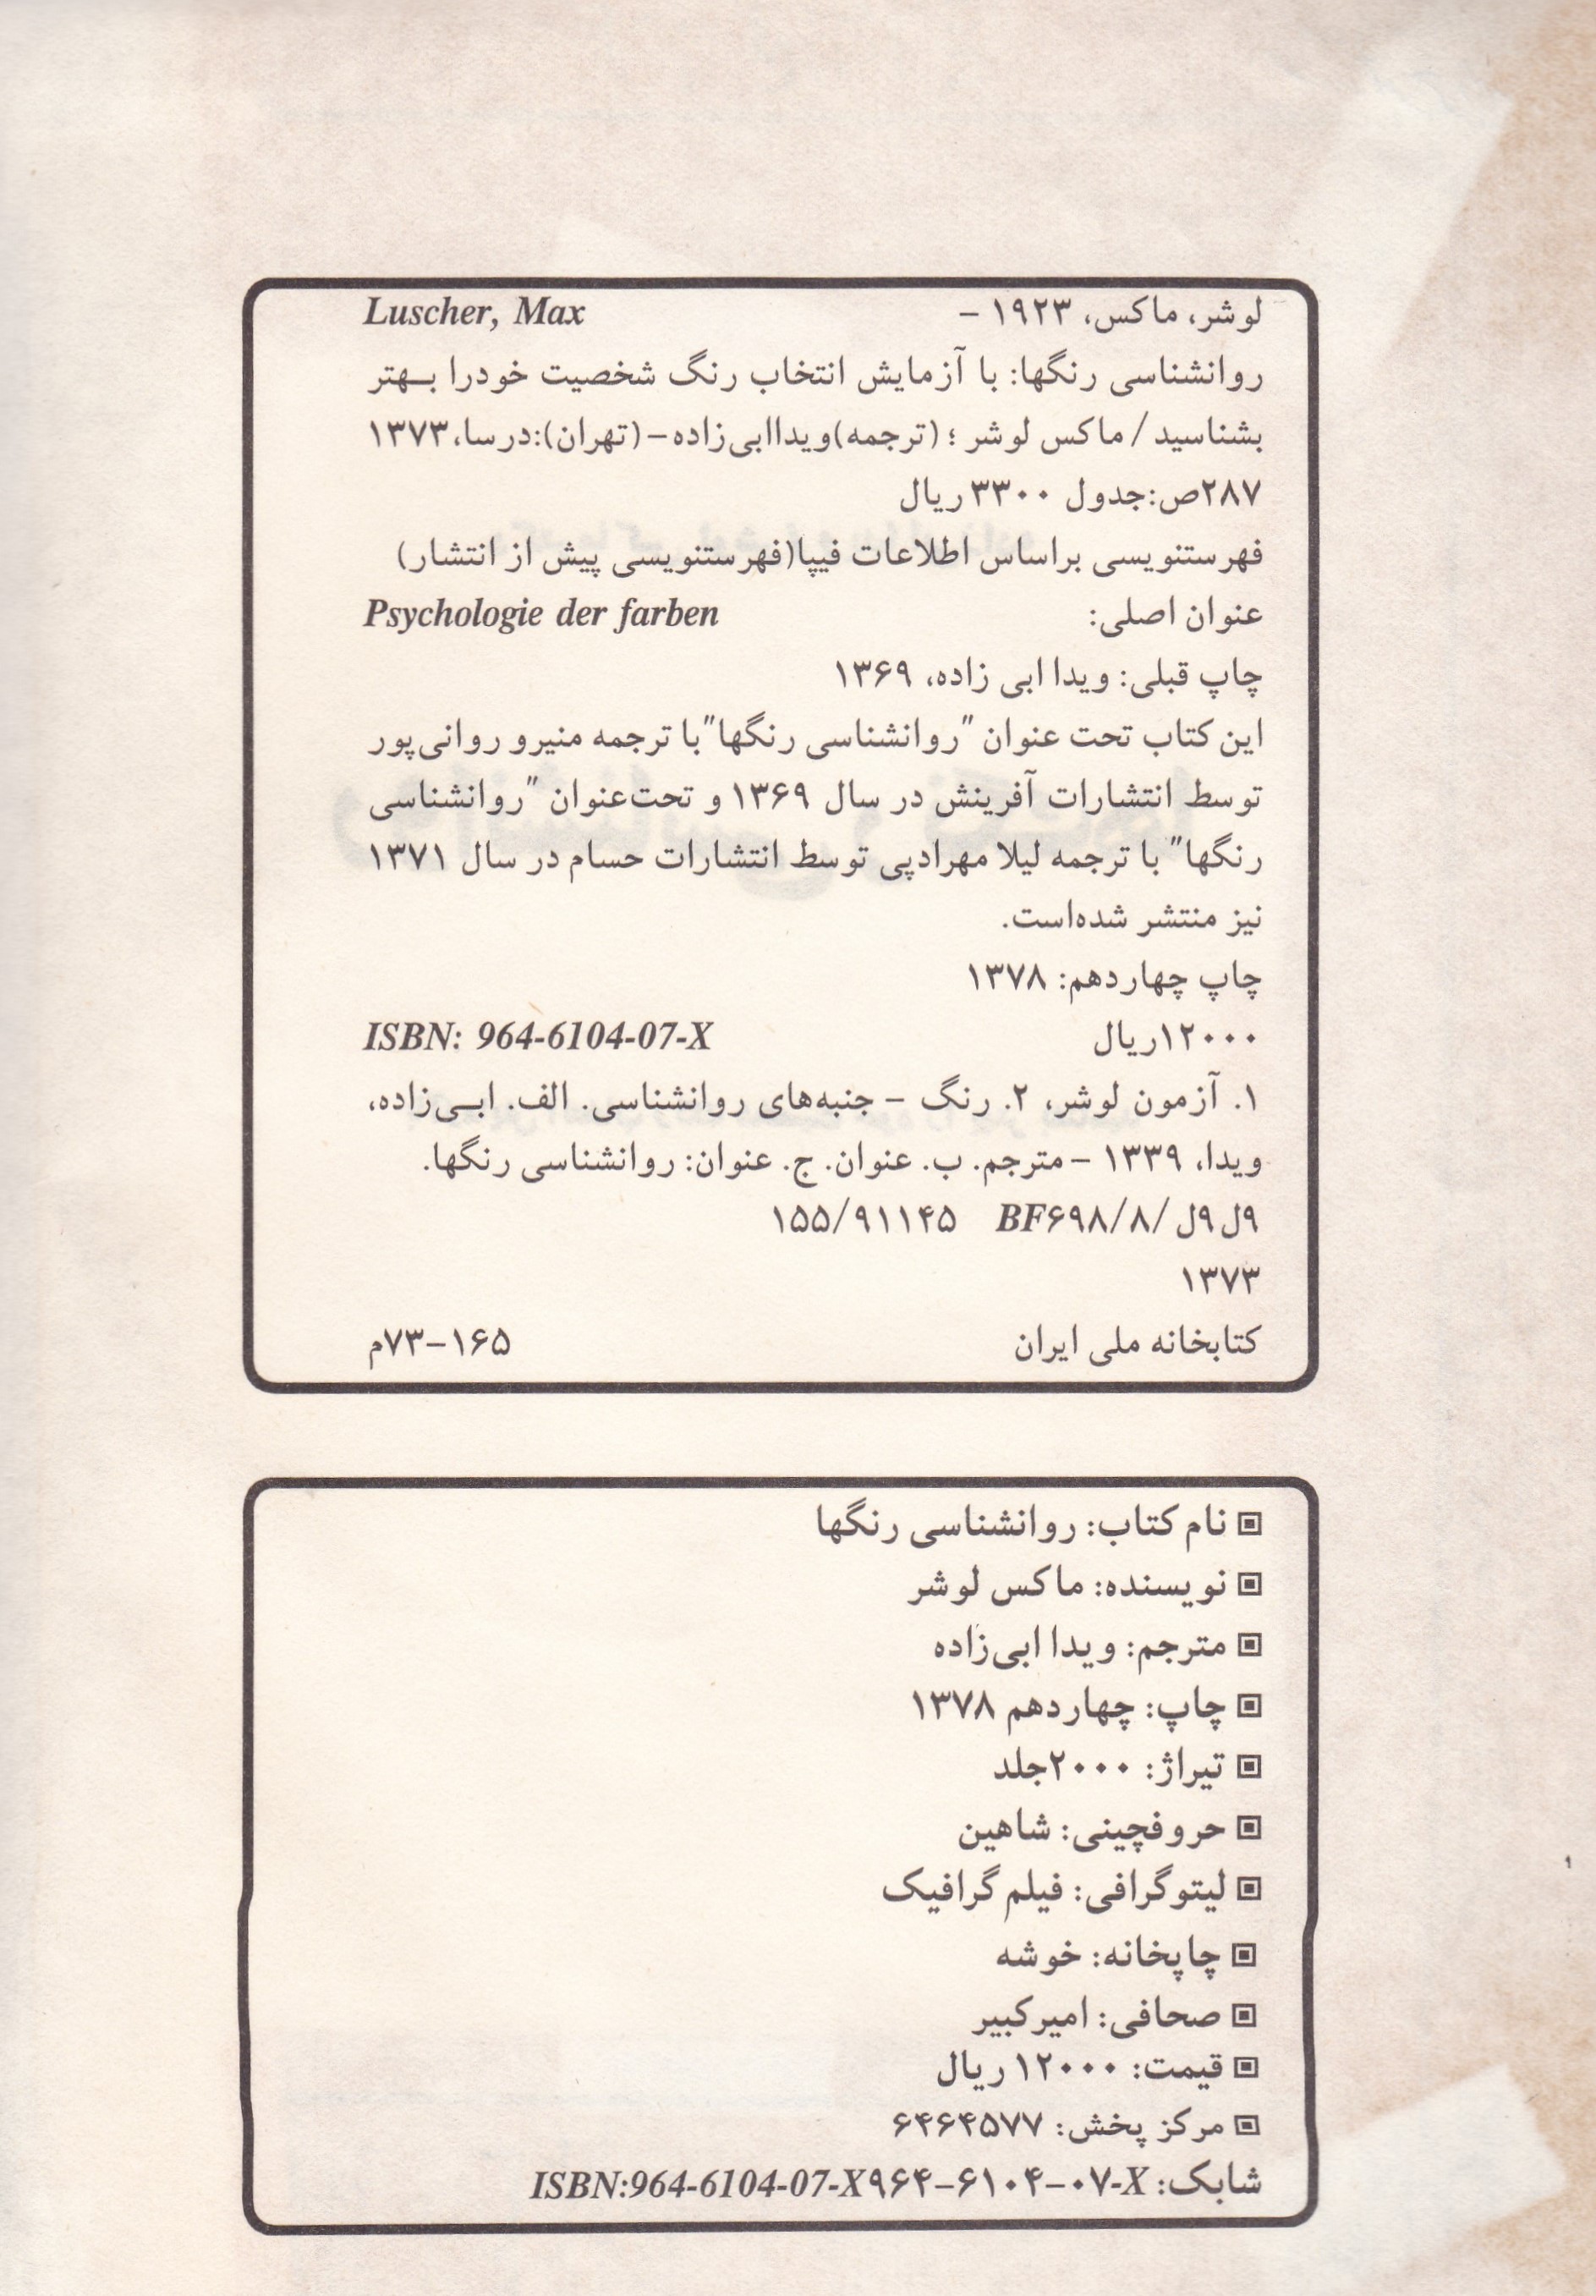 لوشر، ماکس، ۱۹۲۳ - Luscher, Max
روانشناسی رنگها: با آزمایش انتخاب رنگ شخصیت خودرا بهتر
بشناسید / ماکس لوشر ؛ (ترجمه)ویداابی‌زاده-(تهران):درسا،۱۳۷۳
۲۸۷ص:جدول ۳۳۰۰ ریال
فهرستنویسی براساس اطلاعات فیپا(فهرستنویسی پیش از انتشار)
عنوان اصلی: Psychologie der farben
چاپ قبلی: ویدا ابی زاده، ۱۳۶۹
این کتاب تحت عنوان "روانشناسی رنگها"با ترجمه منیرو روانی‌پور
توسط انتشارات آفرینش در سال ۱۳۶۹ و تحت‌عنوان "روانشناسی
رنگها" با ترجمه لیلا مهرادپی توسط انتشارات حسام در سال ۱۳۷۱
نیز منتشر شده‌است.
چاپ چهاردهم: ۱۳۷۸
۱۲۰۰۰ریال ISBN: 964-6104-07-X
۱. آزمون لوشر، ۲. رنگ - جنبه‌های روانشناسی. الف. ابی‌زاده،
ویدا، ۱۳۳۹ - مترجم. ب. عنوان. ج. عنوان: روانشناسی رنگها.
۹ل۹ل /BF۶۹۸/۸ ۱۵۵/۹۱۱۴۵
۱۳۷۳
کتابخانه ملی ایران ۱۶۵-۷۳م
نام کتاب: روانشناسی رنگها
نویسنده: ماکس لوشر
مترجم: ویدا ابی‌زاده
چاپ: چهاردهم ۱۳۷۸
تیراژ: ۲۰۰۰جلد
حروفچینی: شاهین
لیتوگرافی: فیلم گرافیک
چاپخانه: خوشه
صحافی: امیرکبیر
قیمت: ۱۲۰۰۰ ریال
مرکز پخش: ۶۴۶۴۵۷۷
شابک: ۹۶۴-۶۱۰۴-۰۷-X ISBN:964-6104-07-X